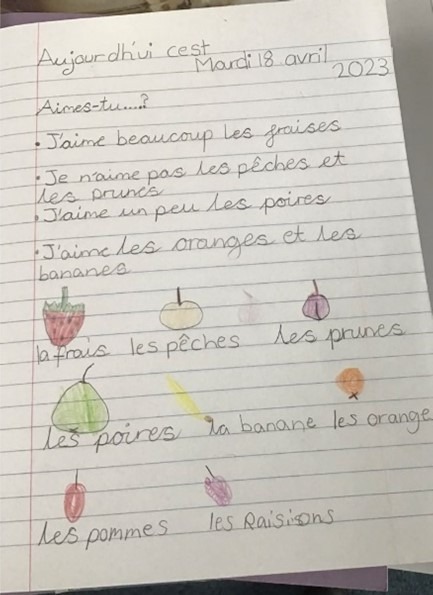 Aujourdh'ui cest
Mardi 18 avril
2023
Aimes-tu....?
• J'aime beaucoup les fraises
• Je n'aime pas les pêches et
les prunes
• J'aime un peu les poires
• J'aime les oranges et les
bananes
la frais les pêches les prunes
les poires la banane les orange
les pommes les Raisisons